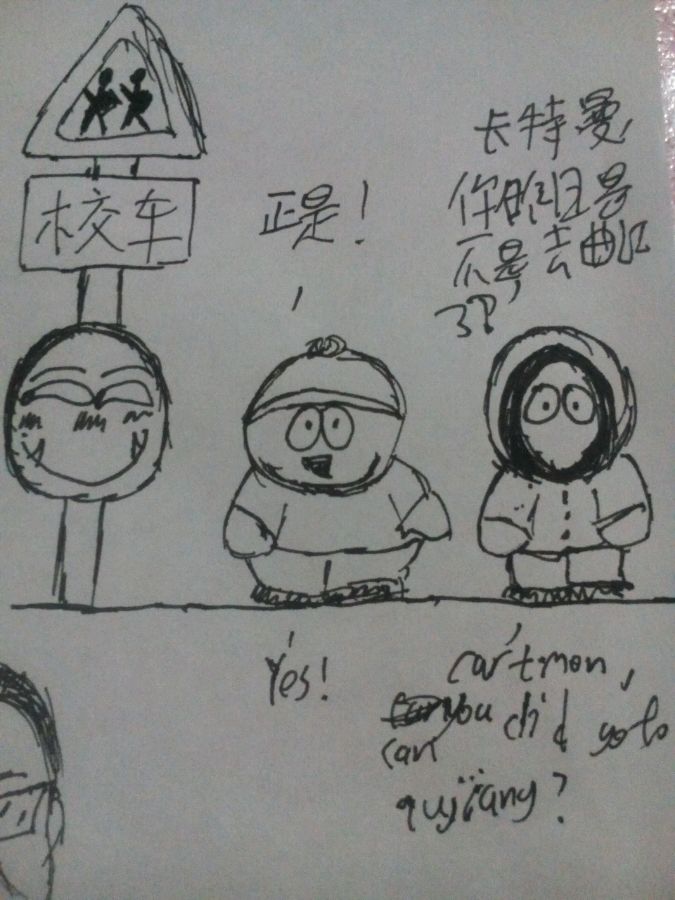 校车
正是！
卡特曼，
你昨日是
不是去曲江
了？
Yes!
cartmon,
you did go to
can
qujiang?